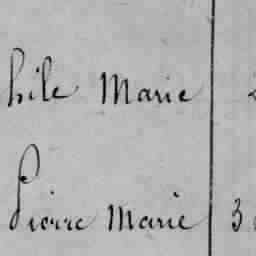 hile Marie
Pierre Marie 3